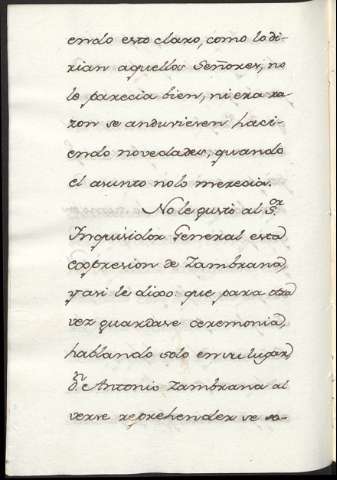 endo esto claro, como lo di-
rian aquellos Señores, no
le parecia bien, ni era ra-
zon se anduviesen haci-
endo novedades, quando
el asunto no lo merecia.
No le gustó al Sor.
Inquisidor General esta
expresion de Zambrana,
y asi le dixo que para otra
vez guardase ceremonia,
hablando solo en su lugar,
Dn. Antonio Zambrana al
verse reprehender se so-